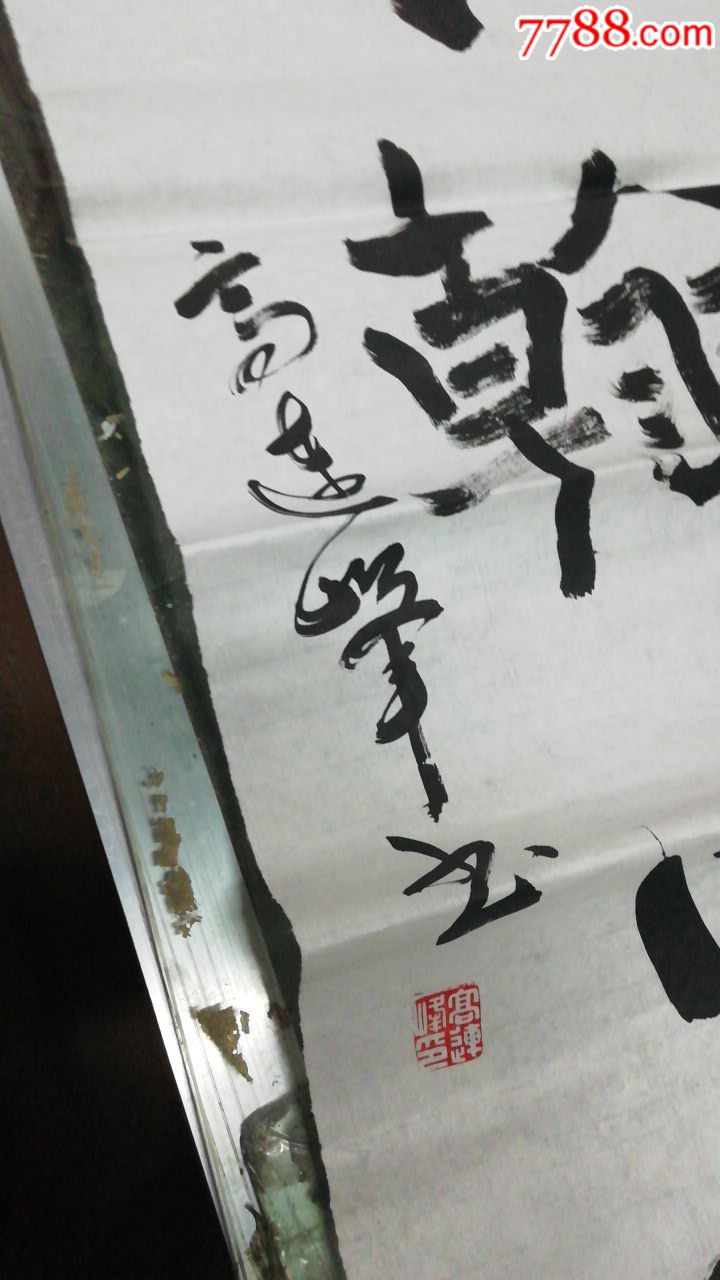 7788.com
翰
高連峯书
高連峰印